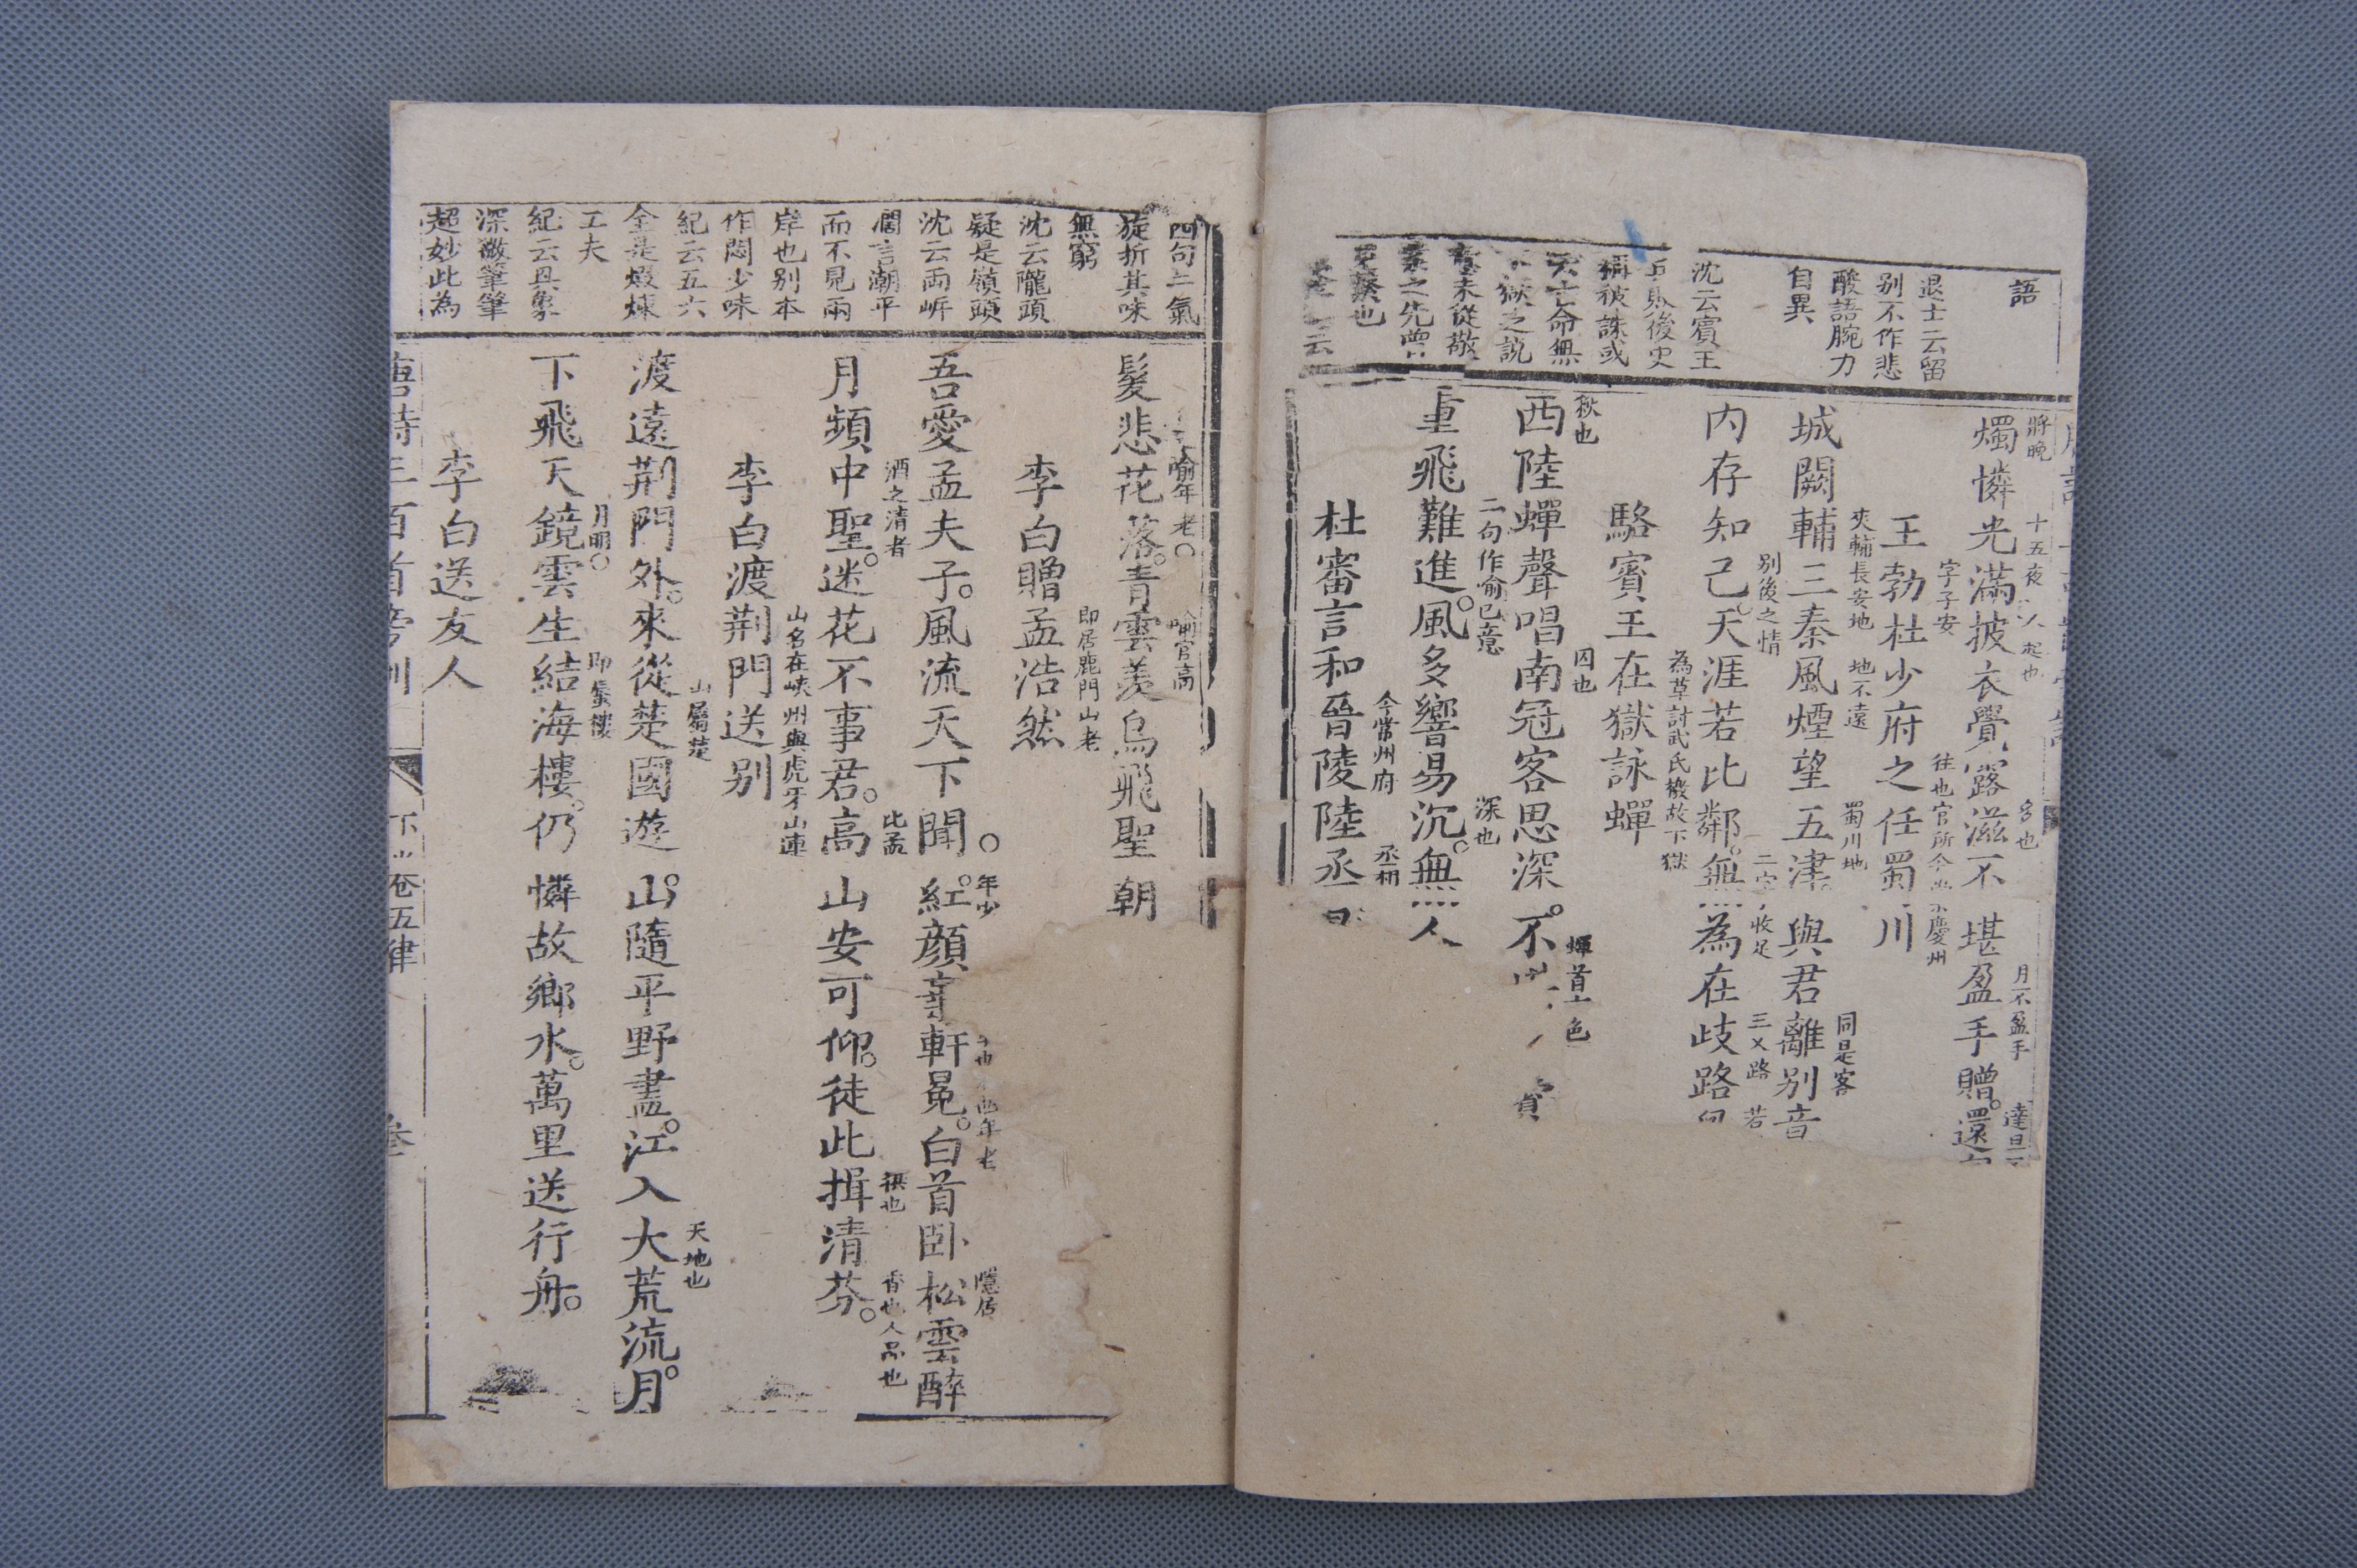 語
退士云留
别不作悲
酸語腕力
自異
沈云賔王
後史
稱被誅或
云亡命無
獄之說
未從敬
之先
也
云
將晚 十五夜 起也 多也 月不盈手 達旦
燭憐光滿披衣覺露滋不堪盈手贈還
字子安 往也官所今 慶州
王勃杜少府之任蜀川
夾輔長安地 地不遠 蜀川地 同是客
城闕輔三秦風煙望五津與君離别
别後之情 二字 收足 三乂路 若
内存知己天涯若比鄰無為在歧路
為草討武氏檄故下獄
駱賓王在獄詠蟬
秋也 囚也 首 色
西陸蟬聲唱南冠客思深不
二句作喻已意 深也
重飛難進風多響易沉無人
今常州府 丞相
杜審言和晉陵陸丞
四句一氣
旋折其味
無窮
沈云隴頭
疑是嶺頭
沈云兩岍
濶言潮平
而不見兩
岸也别本
作悶少味
紀云五六
全是煆煉
工夫
紀云具象
深微筆筆
超妙此為
喻年老 喻官高
髮悲花落青雲羡鳥飛聖朝
即居鹿門山老
李白贈孟浩然
年少 也 年老 隱居
吾愛孟夫子風流天下聞紅顔軒冕白首卧松雲醉
酒之清者 比孟 拱也 香也人品也
月頻中聖迷花不事君高山安可仰徒此揖清芬
山名在峽州與虎牙山連
李白渡荆門送别
山屬楚 天地也
渡遠荆門外來從楚國遊山隨平野盡江入大荒流月
月明 即蜃樓
下飛天鏡雲生結海樓仍憐故鄉水萬里送行舟
李白送友人
唐詩三百首旁訓 下 卷五律